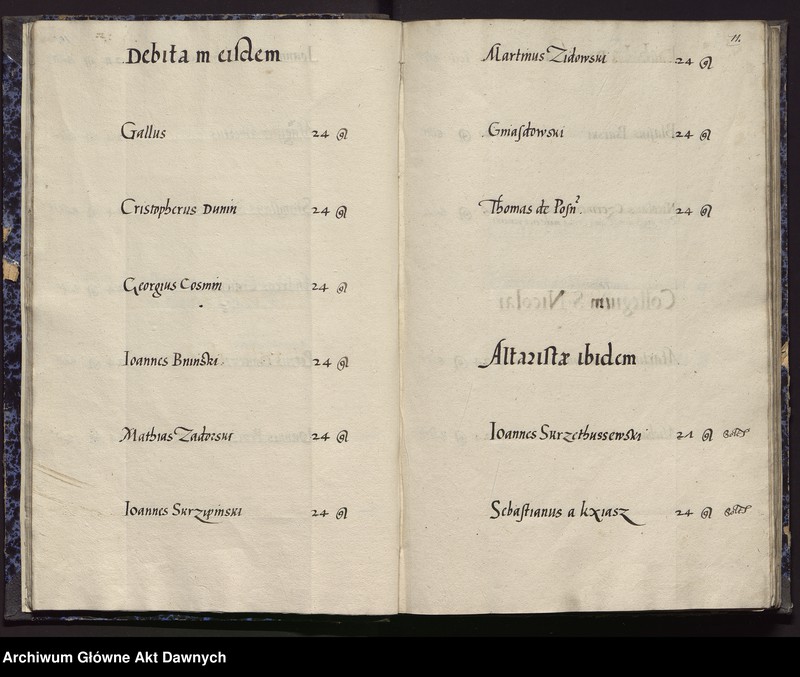 Debita m eisdem
Gallus 24
Cristopherus Dunin 24
Georgius Cosmin 24
Ioannes Bninski 24
Mathias Zadorski 24
Ioannes Skrzipinski 24
11.
Martinus Zidowski 24
Gniasdowski 24
Thomas de Posn. 24
Altaristæ ibidem
Ioannes Skrzethussewski
Sebastianus a kxiasz 24
Archiwum Główne Akt Dawnych